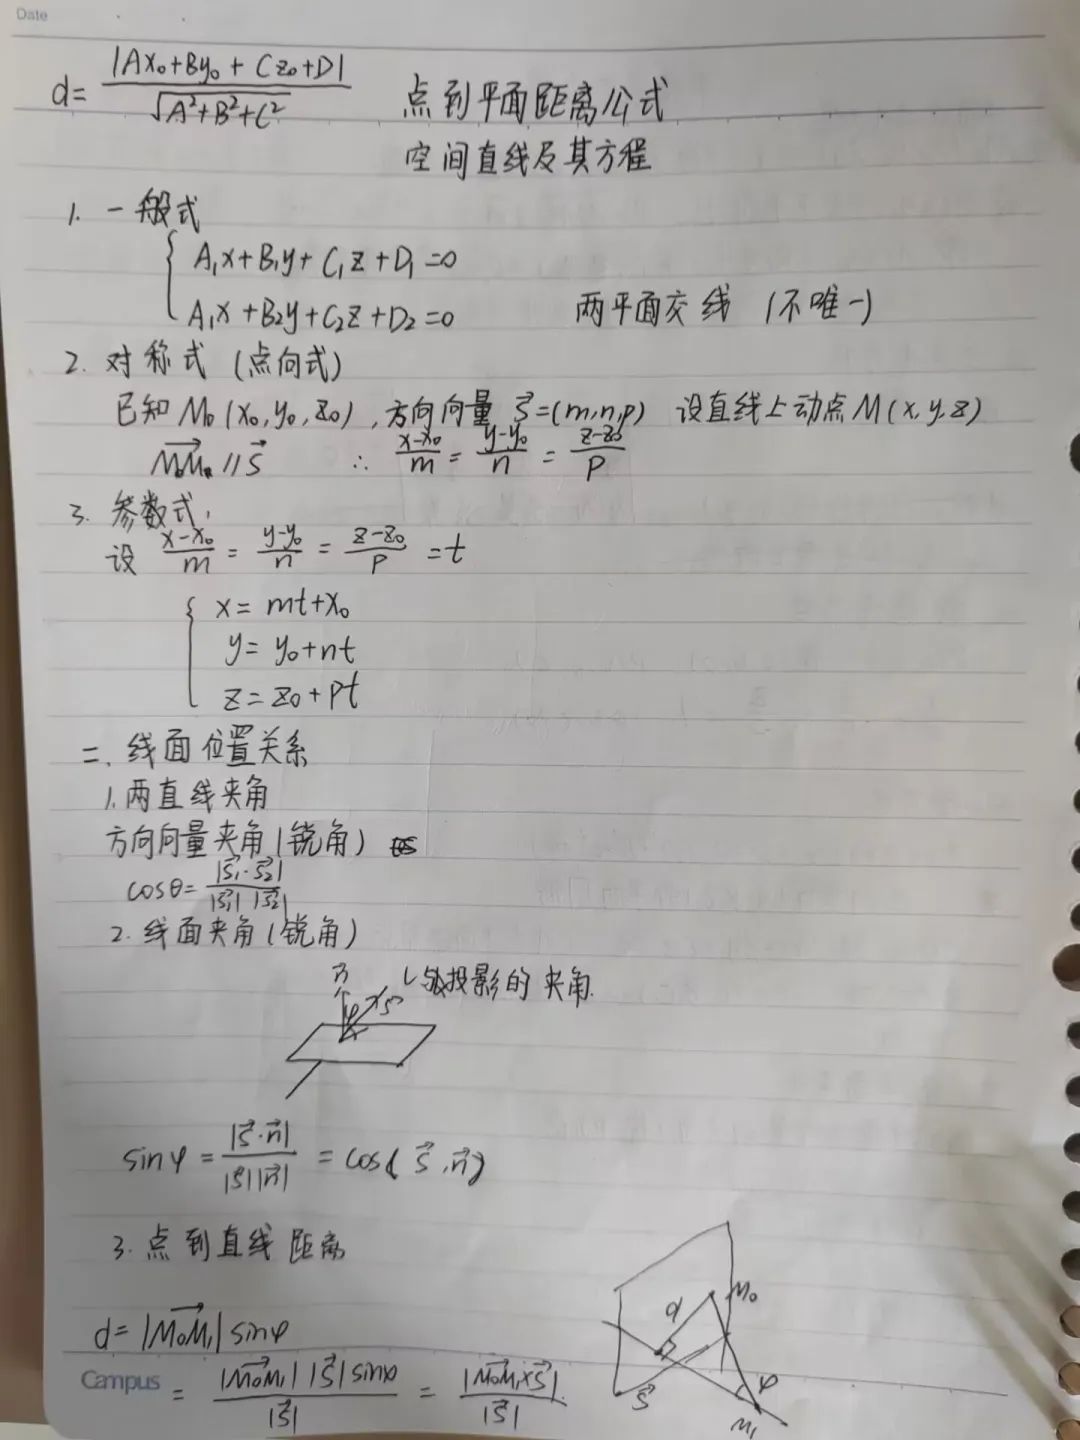 Date
d= |Ax₀+By₀+Cz₀+D| / √(A²+B²+C²) 点到平面距离公式
空间直线及其方程
1. 一般式
{ A₁x+B₁y+C₁z+D₁=0
A₁x+B₂y+C₂z+D₂=0 两平面交线 (不唯一)
2. 对称式 (点向式)
已知 M₀(x₀,y₀,z₀), 方向向量 s⃗=(m,n,p) 设直线上动点M(x,y,z)
M₀M⃗ // s⃗ ∴ (x-x₀)/m = (y-y₀)/n = (z-z₀)/p
3. 参数式,
设 (x-x₀)/m = (y-y₀)/n = (z-z₀)/p =t
{ x= mt+x₀
y= y₀+nt
z=z₀+pt
二、线面位置关系
1. 两直线夹角
方向向量夹角(锐角)
cosθ= |s₁⃗·s₂⃗| / |s₁⃗| |s₂⃗|
2. 线面夹角(锐角)
n⃗ φ s⃗ L与投影的夹角.
sinφ = |s⃗·n⃗| / |s⃗||n⃗| = cos(s⃗,n⃗)
3. 点到直线距离
d M₀ s⃗ φ M₁
d= |M₀M₁⃗| sinφ
Campus = |M₀M₁⃗| |s⃗| sinφ / |s⃗| = |M₀M₁⃗×s⃗| / |s⃗| .